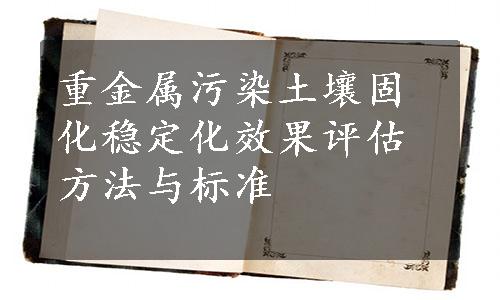 重金属污染土壤固
化稳定化效果评估
方法与标准